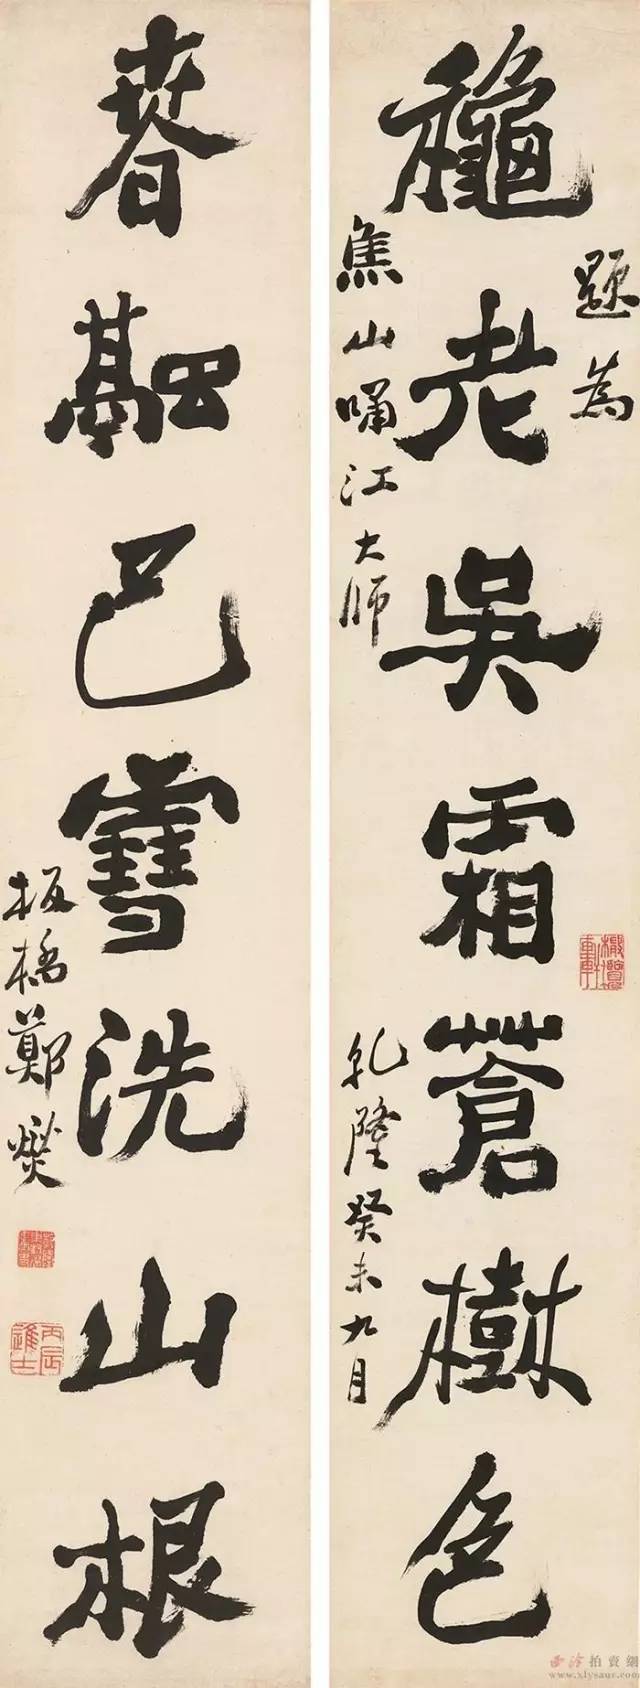 題為
橄欖軒
龝老吳霜蒼樹色
焦山嘯江大師
乾隆癸未九月
春融巴雪洗山根
板橋鄭燮
丙辰進士
西泠拍賣網
www.xlysauc.com